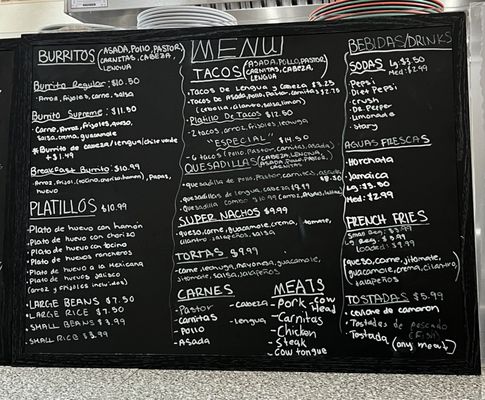 BURRITOS (ASADA, POLLO, PASTOR
CARNITAS, CABEZA,
LENGUA
Burrito Regular: $10.50
-Arroz, frijoles, carne, salsa
Burrito Supreme: $11.50
-Carne, Arroz, frijoles, queso,
salsa, crema, guacamole
*Burrito de cabeza/lengua/chile verde
+ $1.49
Breakfast Burrito: $10.99
-Arroz, frijol, (tocino, chorizo, hamm), Papas,
huevo
PLATILLOS $10.99
-Plato de huevo con hamón
-Plato de huevo con chorizo
-Plato de huevo con tocino
-Plato de huevos rancheros
-Plato de huevo a la Mexicana
-Plato de huevos Jalisco
(arroz y frijoles incluidos)
-LARGE BEANS $7.50
-LARGE RICE $7.50
-SMALL BEANS $3.99
-SMALL RICE $3.99
MENU
TACOS (ASADA, POLLO, PASTOR
CARNITAS, CABEZA,
LENGUA
-Tacos De Lengua y Cabeza $3.25
-Tacos De Asada, Pollo, Pastor, Carnitas $2.75
(cebolla, cilantro, salsa, limon)
Platillo De Tacos $12.50
-2 tacos, arroz, frijoles, lechuga
"ESPECIAL" $14.50
-6 tacos (Pollo, Pastor, carnitas, asada)
QUESADILLAS (CABEZA, LENGUA,
ASADA, POLLO, PASTOR,
CARNITAS
-quesadilla de pollo, Pastor, carnitas, asada
$8.50
-quesadillas de lengua, cabeza $9.19
-Quesadilla combo $10.99 (arroz, frijoles,
SUPER NACHOS $9.99
-queso, carne, guacamole, crema,
cilantro, jalapeños, salsa
TORTAS $9.99
-carne, lechuga, mayonesa, guacamole,
jitomate, salsa, jalapeños
CARNES
-Pastor
-carnitas
-Pollo
-Asada
-cabeza
-lengua
MEATS
-Pork
-Cow Head
-Carnitas
-Chicken
-Steak
-Cow tongue
BEBIDAS/DRINKS
SODAS Lg: $3.50
Med: $2.99
-Pepsi
-Diet Pepsi
-crush
-Dr. Pepper
-Limonade
-Story
AGUAS FRESCAS
Horchata
Jamaica
Lg: $3.50
Med: $2.99
FRENCH FRIES
Small Reg: $3.99
Lg Reg: $5.99
Loaded: $9.99
(queso, carne, jitomate,
guacamole, crema, cilantro,
jalapeños
TOSTADAS $5.99
-ceviche de camaron
-Tostadas de pescado
(FISH)
-Tostada (any meat)